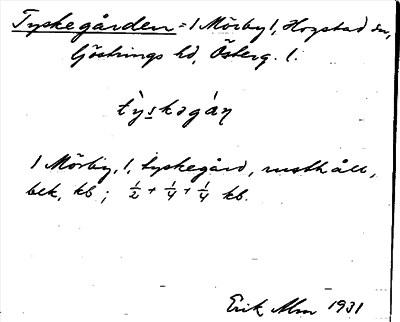 Tyskegården = 1 Mörby 1, Hogstad sn,
Göstrings hd, Österg. l.
tỳskəgàṇ
1 Mörby, 1, tyskegård, rusthåll,
bek. kb; ½ + ¼ + ¼ kb.
Erik Alm 1931